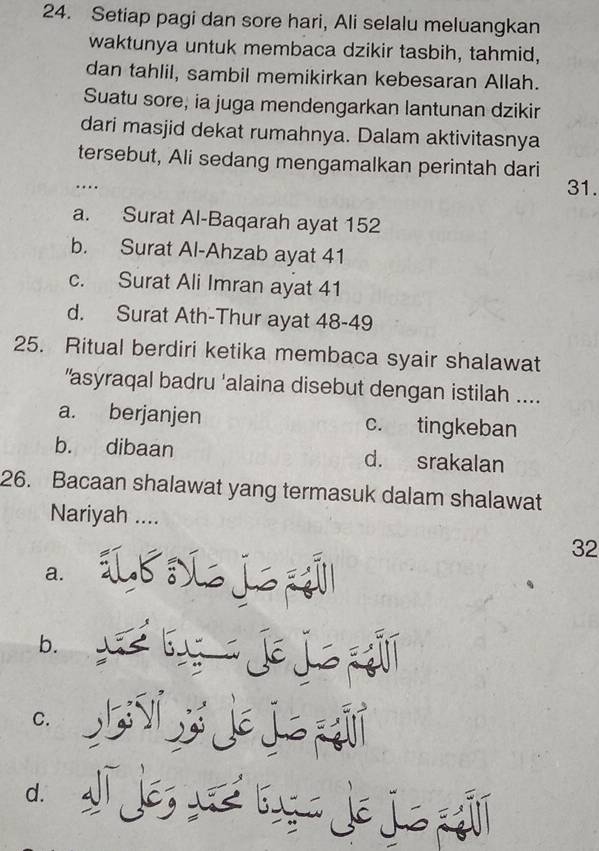 24. Setiap pagi dan sore hari, Ali selalu meluangkan
waktunya untuk membaca dzikir tasbih, tahmid,
dan tahlil, sambil memikirkan kebesaran Allah.
Suatu sore, ia juga mendengarkan lantunan dzikir
dari masjid dekat rumahnya. Dalam aktivitasnya
tersebut, Ali sedang mengamalkan perintah dari
....
a. Surat Al-Baqarah ayat 152
b. Surat Al-Ahzab ayat 41
c. Surat Ali Imran ayat 41
d. Surat Ath-Thur ayat 48-49
25. Ritual berdiri ketika membaca syair shalawat
"asyraqal badru 'alaina disebut dengan istilah ....
a. berjanjen
c. tingkeban
b. dibaan
d. srakalan
26. Bacaan shalawat yang termasuk dalam shalawat
Nariyah ....
a. اَللّٰهُمَّ صَلِّ صَلَاةً كَامِلَةً
b. اَللّٰهُمَّ صَلِّ عَلٰى سَيِّدِنَا مُحَمَّدٍ
c. اَللّٰهُمَّ صَلِّ عَلٰى نُوْرِ الْاَنْوَارِ
d. اَللّٰهُمَّ صَلِّ عَلٰى سَيِّدِنَا مُحَمَّدٍ وَعَلٰى اٰلِهِ
31.
32